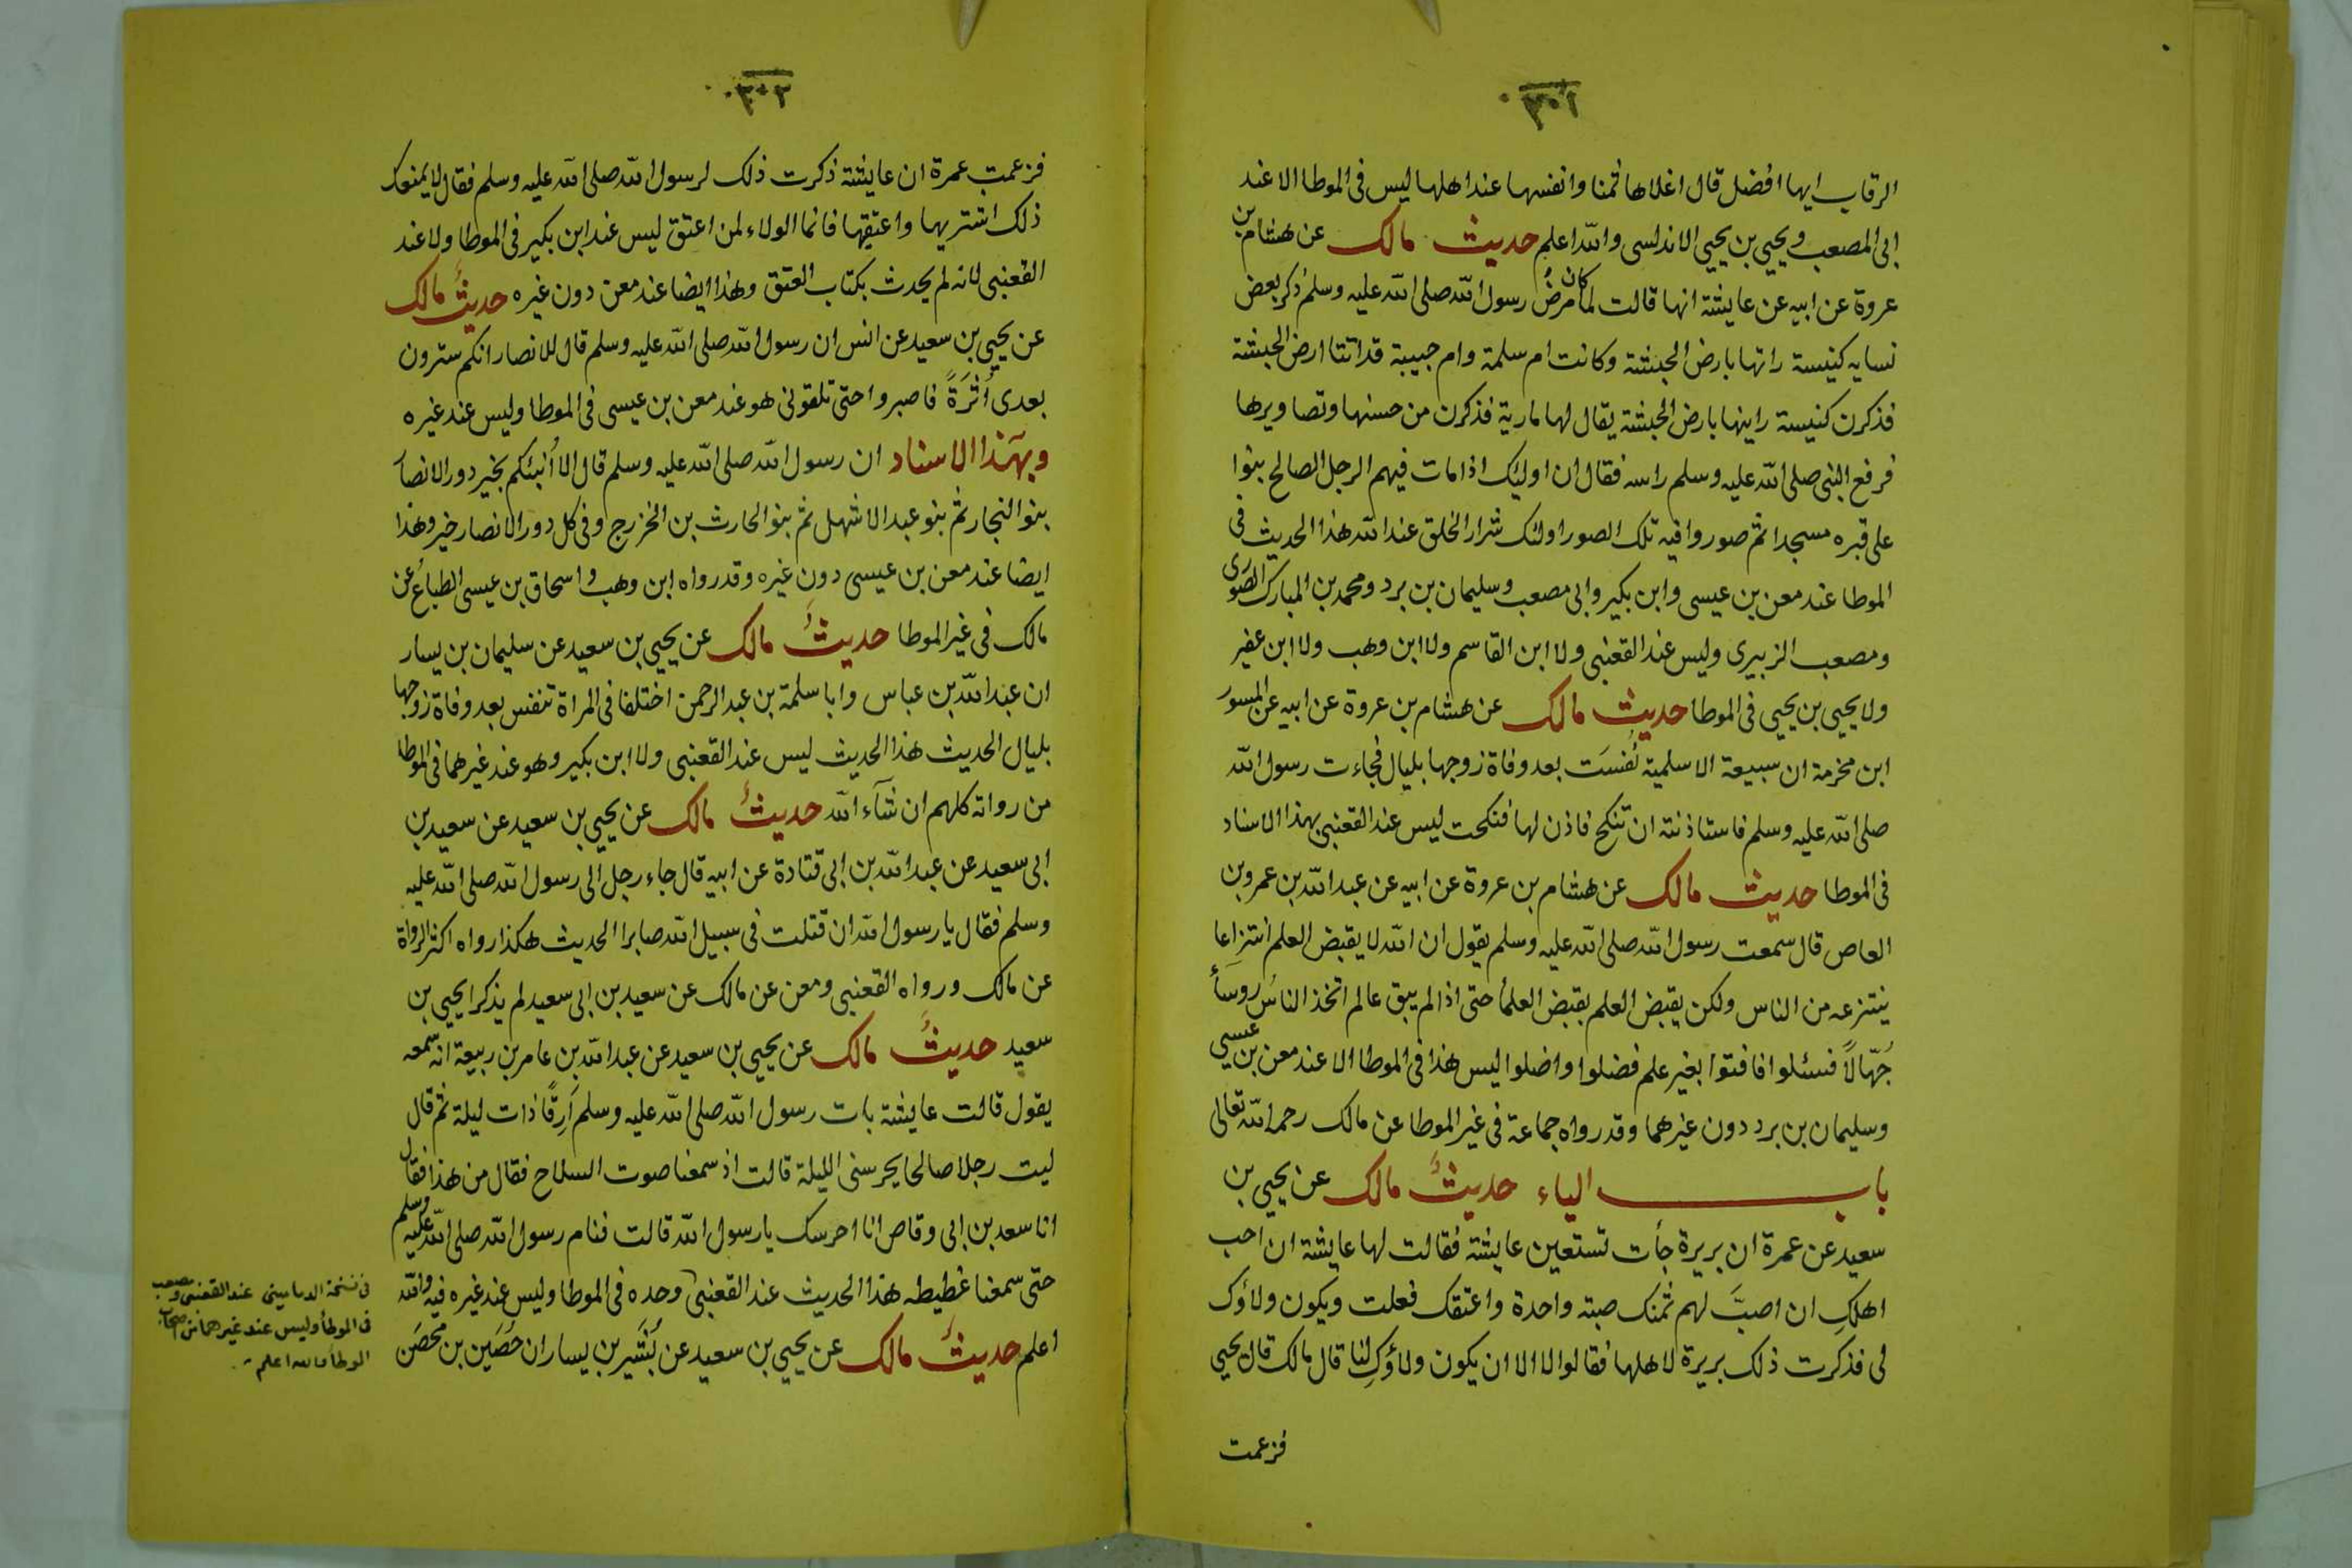 الرقاب ايها افضل قال اغلاها ثمنا وانفسها عند اهلها ليس فى الموطا الا عند
ابى المصعب ويحيي بن يحيي الاندلسى والله اعلم حديث مالك عن هشام بن
عروة عن ابيه عن عايشة انها قالت لما كان مرض رسول الله صلى الله عليه وسلم ذكر بعض
نسايه كنيسة راتها بارض الحبشة وكانت ام سلمة وام حبيبة قد اتتا ارض الحبشة
فذكرن كنيسة راينها بارض الحبشة يقال لها مارية فذكرن من حسنها وتصاويرها
فرفع النبى صلى الله عليه وسلم راسه فقال ان اوليك اذا مات فيهم الرجل الصالح بنوا
على قبره مسجدا ثم صوروا فيه تلك الصور اولئك شرار الخلق عند الله هذا الحديث فى
الموطا عند معن بن عيسى وابن بكير وابى مصعب وسليمان بن برد ومحمد بن المبارك الصورى
ومصعب الزبيرى وليس عند القعنبى ولا ابن القاسم ولا ابن وهب ولا ابن عفير
ولا يحيي بن يحيي فى الموطا حديث مالك عن هشام بن عروة عن ابيه عن المسور
ابن مخرمة ان سبيعة الاسلمية نُفِسَت بعد وفاة زوجها بليال فجاءت رسول الله
صلى الله عليه وسلم فاستاذنته ان تنكح فاذن لها فنكحت ليس عند القعنبى بهذا الاسناد
فى الموطا حديث مالك عن هشام بن عروة عن ابيه عن عبد الله بن عمرو بن
العاص قال سمعت رسول الله صلى الله عليه وسلم يقول ان الله لا يقبض العلم انتزاعا
ينتزعه من الناس ولكن يقبض العلم بقبض العلمأ حتى اذا لم يبق عالم اتخذ الناسُ روسَأً
جُهّالاً فسئلوا فافتوا بغير علم فضلوا واضلوا ليس هذا فى الموطا الا عند معن بن عيسى
وسليمان بن برد دون غيرهما وقد رواه جماعة فى غير الموطا عن مالك رحمه الله تعالى
باب الياء حديثُ مالك عن يحيي بن
سعيد عن عمرة ان بريرة جأت تستعين عايشة فقالت لها عايشة ان احب
اهلكِ ان اصبَّ لهم ثمنك صبته واحدة واعتقك فعلت ويكون ولاؤك
لى فذكرت ذلك بريرة لاهلها فقالوا لا الا ان يكون ولاؤكِ لنا قال مالك قال يحيي
فزعمت
٢٠٣
فزعمت عمرة ان عايشة ذكرت ذلك لرسول الله صلى الله عليه وسلم فقال لا يمنعك
ذلك اشتريها واعتقيها فانما الولاء لمن اعتق ليس عند ابن بكير فى الموطا ولا عند
القعنبى لانه لم يحدث بكتاب العتق وهذا ايضا عند معن دون غيره حديثُ مالك
عن يحيي بن سعيد عن انس ان رسول الله صلى الله عليه وسلم قال للانصار انكم سترون
بعدى أثَرَةً فاصبروا حتى تلقونى هو عند معن بن عيسى فى الموطا وليس عند غيره
وبهذا الاسناد ان رسول الله صلى الله عليه وسلم قال الا أنبئكم بخير دور الانصار
بنو النجار ثم بنو عبد الاشهل ثم بنو الحارث بن الخزرج وفى كل دور الانصار خير وهذا
ايضا عند معن بن عيسى دون غيره وقد رواه ابن وهب واسحاق بن عيسى الطباع عن
مالك فى غير الموطا حديثُ مالك عن يحيي بن سعيد عن سليمان بن يسار
ان عبد الله بن عباس وابا سلمة بن عبد الرحمن اختلفا فى المراة تنفس بعد وفاة زوجها
بليال الحديث هذا الحديث ليس عند القعنبى ولا ابن بكير وهو عند غيرهما فى الموطا
من رواته كلهم ان شآء الله حديثُ مالك عن يحيي بن سعيد عن سعيد بن
ابى سعيد عن عبد الله بن ابى قتادة عن ابيه قال جاء رجل الى رسول الله صلى الله عليه
وسلم فقال يا رسول الله ان قتلت فى سبيل الله صابرا الحديث هكذا رواه اكثر الرواة
عن مالك ورواه القعنبى ومعن عن مالك عن سعيد بن ابى سعيد لم يذكرا يحيي بن
سعيد حديثُ مالك عن يحيي بن سعيد عن عبد الله بن عامر بن ربيعة انه سمعه
يقول قالت عايشة بات رسول الله صلى الله عليه وسلم أَرِقًا ذات ليلة ثم قال
ليت رجلا صالحا يحرسنى الليلة قالت اذ سمعنا صوت السلاح فقال من هذا فقال
انا سعد بن ابى وقاص انا احرسك يا رسول الله قالت فنام رسول الله صلى الله عليه وسلم
حتى سمعنا غطيطه هذا الحديث عند القعنبى وحده فى الموطا وليس عند غيره فيه والله
اعلم حديثُ مالك عن يحيي بن سعيد عن بُشَير بن يسار ان حُصَين بن محصَن
فى نسخة الدمامينى عند القعنبى ومصعب
فى الموطأ وليس عند غيرهما من اصحاب
الموطأ والله اعلم